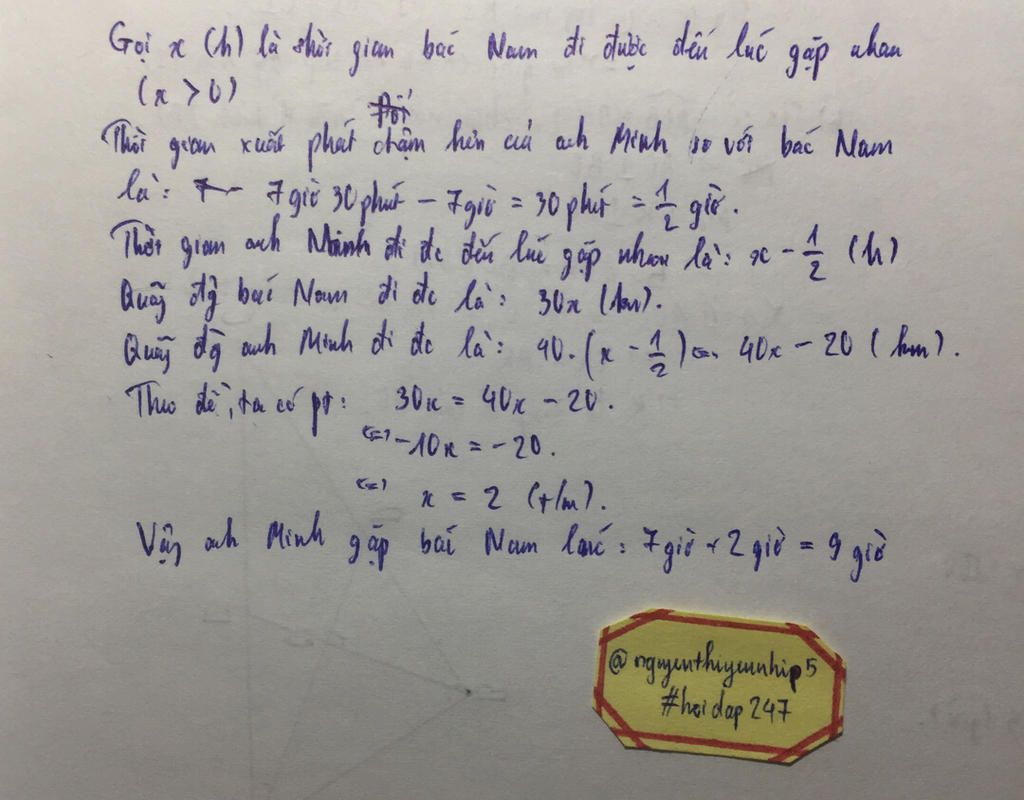 Gọi x (h) là thời gian bác Nam đi được đến lúc gặp nhau
(x > 0)
Thời gian xuất phát chậm hơn củ anh Minh so với bác Nam
là: 7 giờ 30 phút - 7 giờ = 30 phút = 1/2 giờ.
Thời gian anh Minh đi đc đến lúc gặp nhau là: x - 1/2 (h)
Quãng đg bác Nam đi đc là: 30x (km).
Quãng đg anh Minh đi đc là: 40. (x - 1/2) <=> 40x - 20 (km).
Theo đề, ta có pt: 30x = 40x - 20.
<=> -10x = -20.
<=> x = 2 (t/m).
Vậy anh Minh gặp bác Nam lúc: 7 giờ + 2 giờ = 9 giờ
@nguyenthiyennhip5
#hoidap247